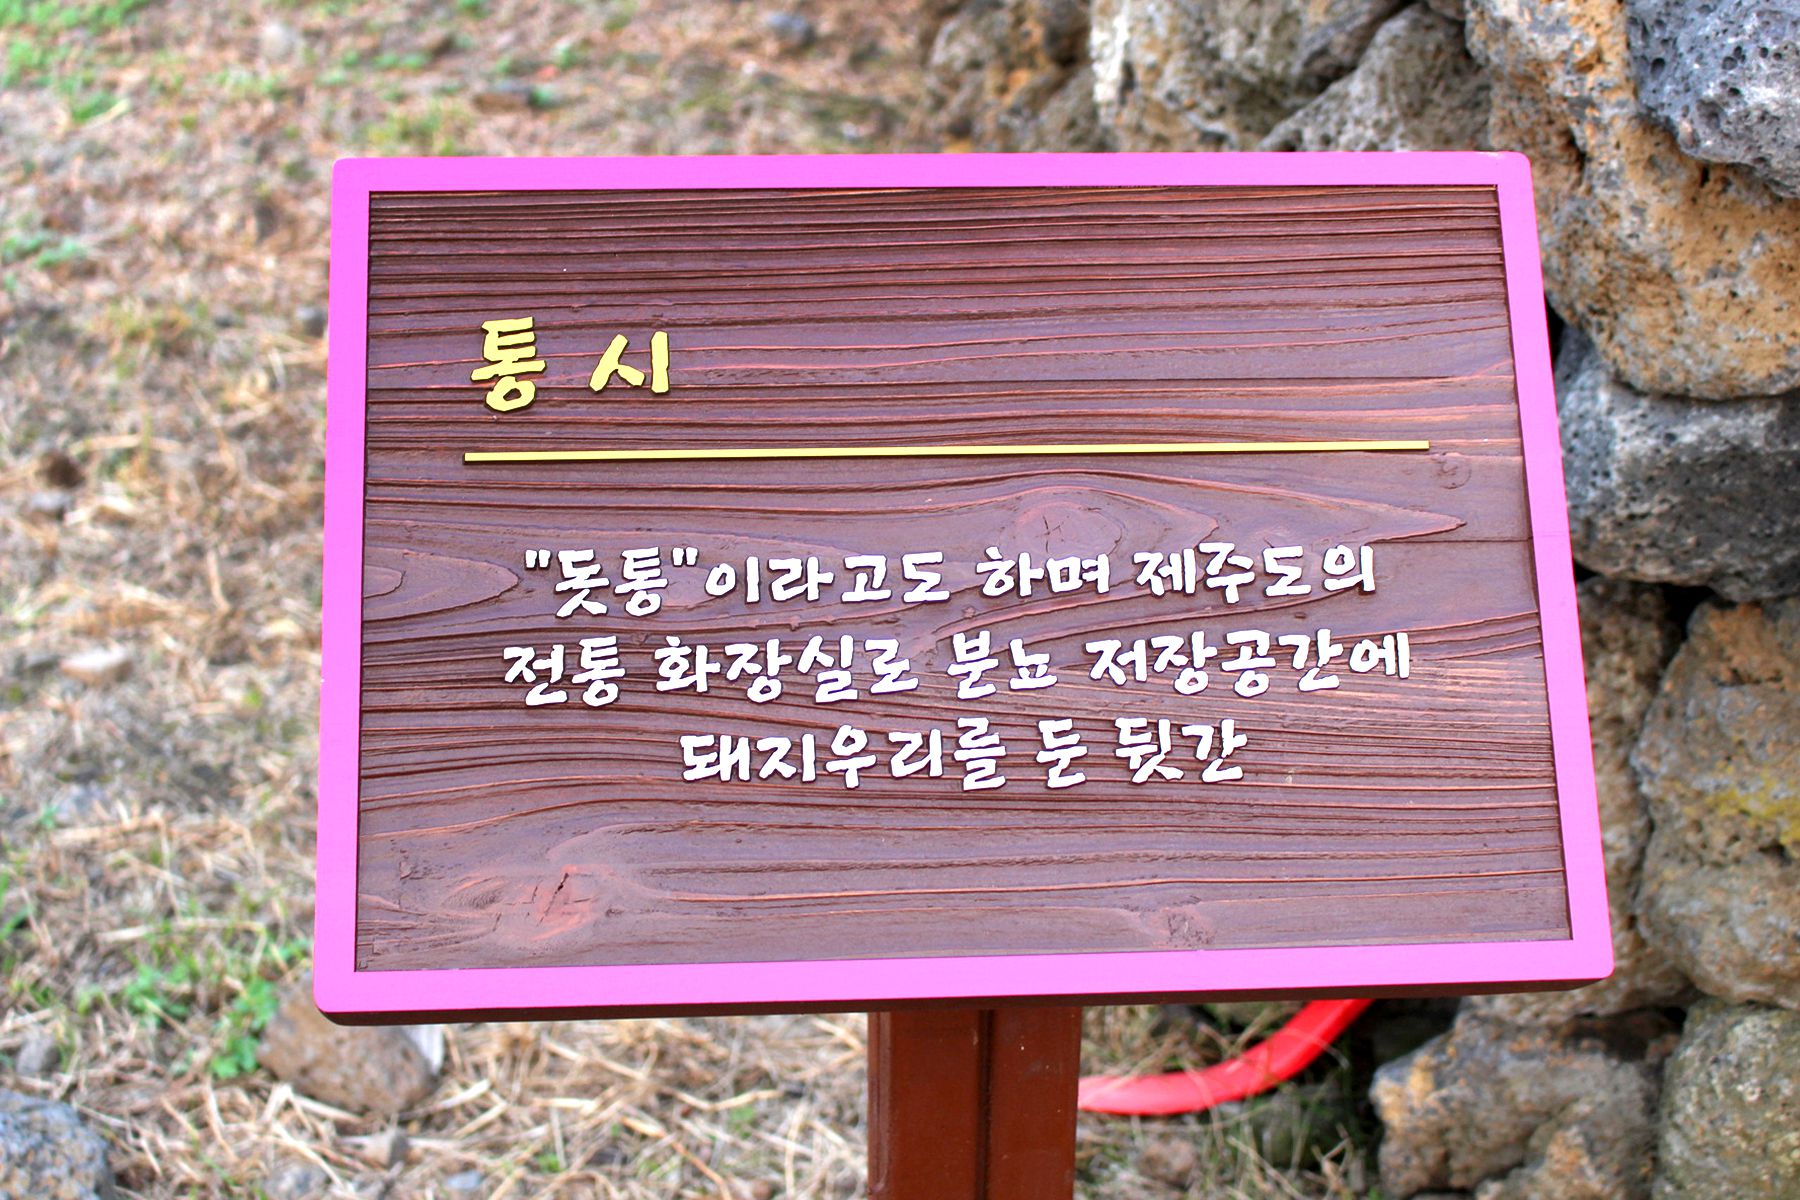 통 시
"돗통"이라고도 하며 제주도의
전통 화장실로 분뇨 저장공간에
돼지우리를 둔 뒷간